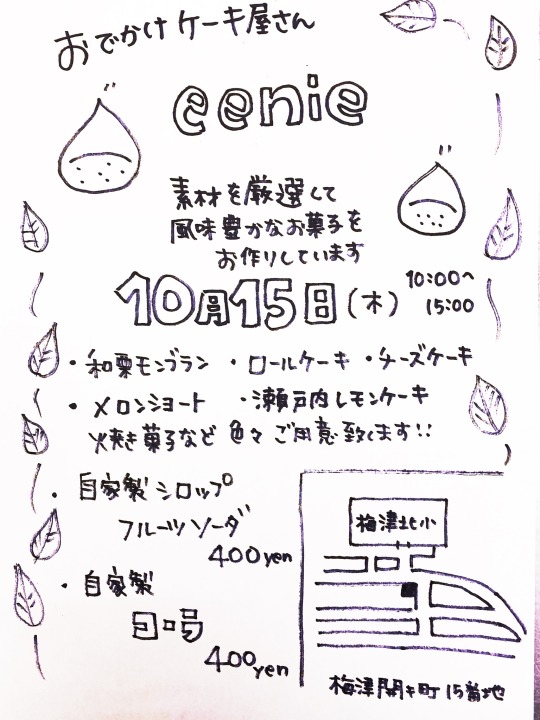 おでかけケーキ屋さん
eenie
素材を厳選して
風味豊かなお菓子を
お作りしています
10月15日(木) 10:00〜
15:00
・和栗モンブラン ・ロールケーキ ・チーズケーキ
・メロンショート ・瀬戸内レモンケーキ
焼き菓子など 色々 ご用意致します!!
・自家製 シロップ
フルーツソーダ
400yen
・自家製
400yen
梅津北小
梅津開キ町 15番地